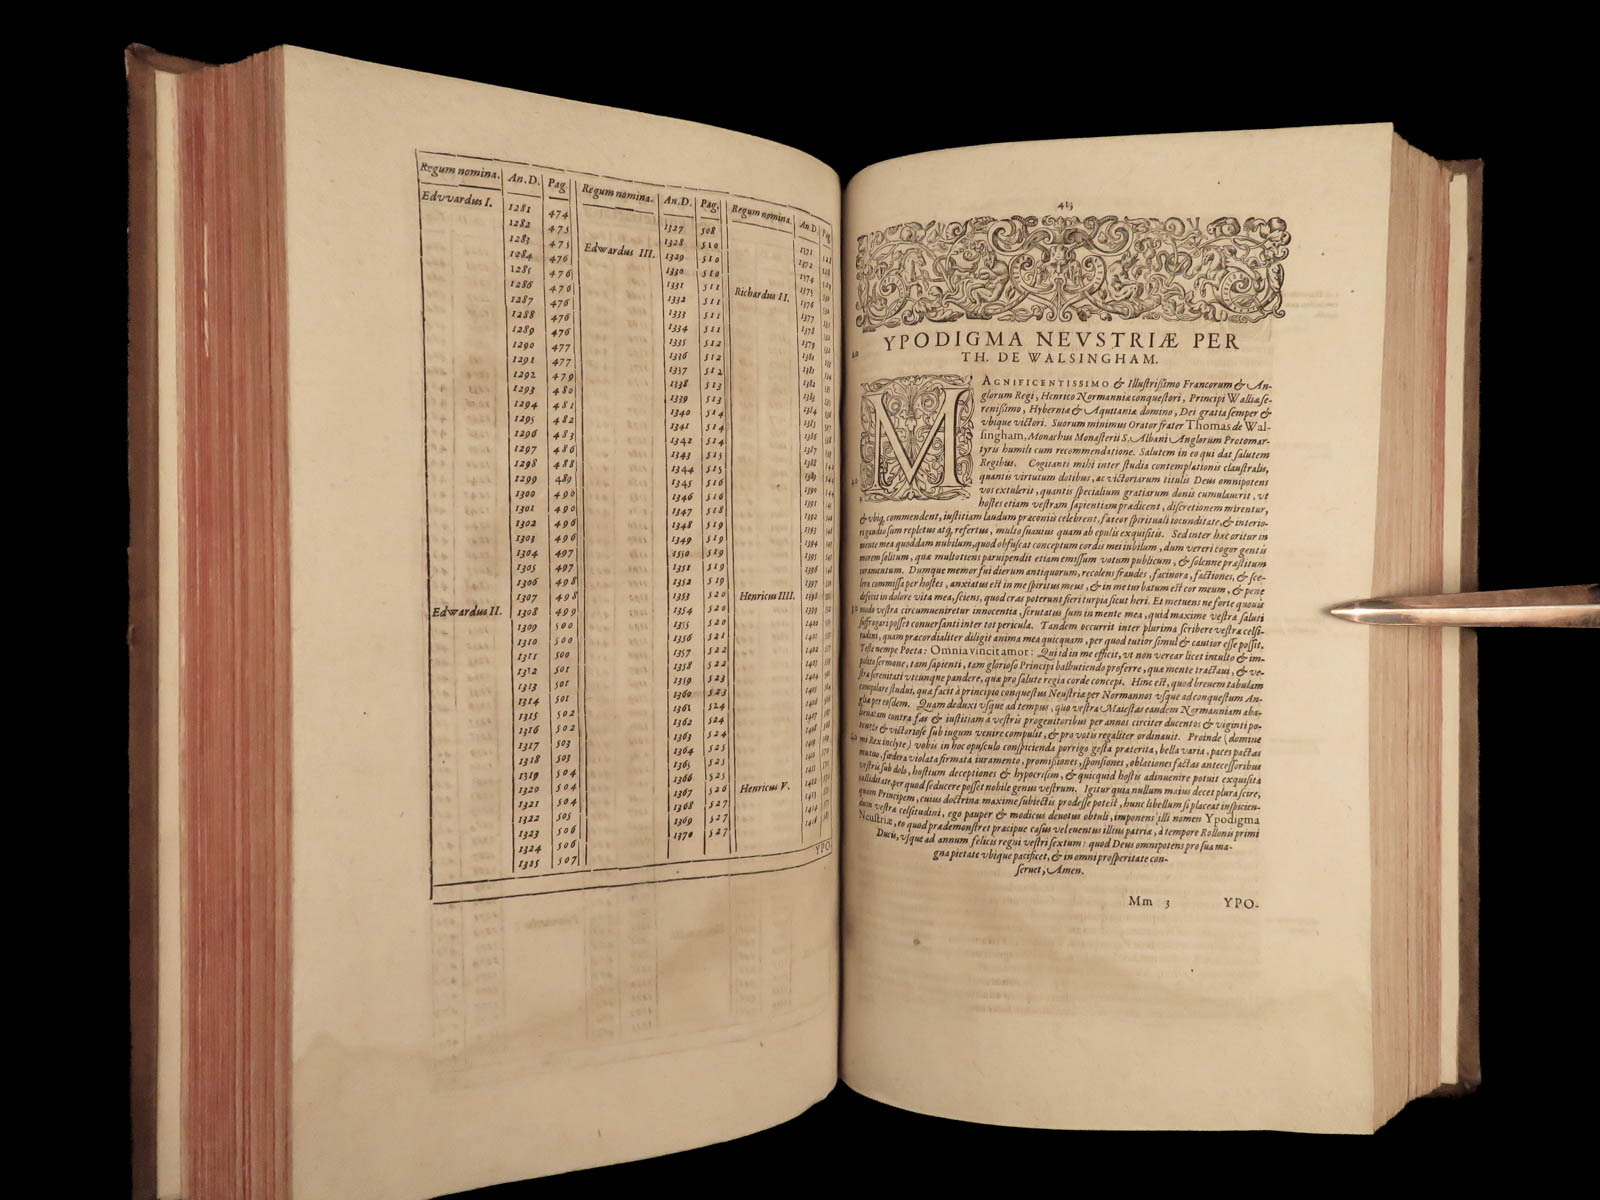 Regum nomina. An. D. Pag. Regum nomina. An. D. Pag. Regum nomina. An. D. Pag.
Edvvardus I.
1281 474
1282 475
1283 475
1284 476
1285 476
1286 476
1287 476
1288 476
1289 476
1290 477
1291 477
1292 479
1293 480
1294 481
1295 482
1296 483
1297 486
1298 488
1299 489
1300 490
1301 490
1302 496
1303 496
1304 497
1305 497
1306 498
1307 498
Edwardus II. 1308 499
1309 500
1310 500
1311 500
1312 501
1313 501
1314 501
1315 502
1316 502
1317 503
1318 503
1319 504
1320 504
1321 504
1322 505
1323 506
1324 506
1325 507
1327 508
Edwardus III. 1328 510
1329 510
1330 510
1331 511
1332 511
1333 511
1334 511
1335 512
1336 512
1337 512
1338 513
1339 513
1340 514
1341 514
1342 514
1343 515
1344 515
1345 516
1346 516
1347 518
1348 519
1349 519
1350 519
1351 519
1352 519
1353 520
1354 520
1355 520
1356 521
1357 522
1358 522
1359 523
1360 523
1361 524
1362 524
1363 524
1364 525
1365 525
1366 525
1367 526
1368 527
1369 527
1370 527
Richardus II.
Henricus IIII.
Henricus V.
YPO-
YPODIGMA NEVSTRIÆ PER
TH. DE WALSINGHAM.
MAGNIFICENTISSIMO & Illustrißimo Francorum & An-
glorum Regi, Henrico Normanniæ conquestori, Principi Walliæ se-
renißimo, Hyberniæ & Aquitaniæ domino, Dei gratia semper &
vbique victori. Suorum minimus Orator frater Thomas de Wal-
singham, Monachus Monasterii S. Albani Anglorum Protomar-
tyris humili cum recommendatione. Salutem in eo qui dat salutem
Regibus. Cogitanti mihi inter studia contemplationis claustralis,
quantis virtutum dotibus, ac victoriarum titulis Deus omnipotens
vos extulerit, quantis specialium gratiarum donis cumulauerit, vt
hostes etiam vestram sapientiam prædicent, discretionem mirentur,
& vbiq, commendent, iustitiam laudum præconiis celebrent, fateor spirituali iocunditate, & interio-
ri gaudio sum repletus atq, refertus, multo suauius quam ab epulis exquisitis. Sed inter hæc oritur in
mente mea quoddam nubilum, quod obfuscat conceptum cordis mei iubilum, dum vereri cogor gentis
morem solitum, quæ multotiens paruipendit etiam emissum votum publicum, & solenne præstitum
iuramentum. Dumque memor fui dierum antiquorum, recolens fraudes, facinora, factiones, & sce-
lera commissa per hostes, anxiatus est in me spiritus meus, & in me turbatum est cor meum, & pene
deficit in dolore vita mea, sciens, quod cras poterunt fieri turpia sicut heri. Et metuens ne forte quouis
modo vestra circumueniretur innocentia, scrutatus sum in mente mea, quid maxime vestræ saluti
suffragari posset conuersanti inter tot pericula. Tandem occurrit inter plurima scribere vestræ celsi-
tudini, quam præcordialiter diligit anima mea quicquam, per quod tutior simul & cautior esse possit.
Teste nempe Poeta: Omnia vincit amor: Quid in me efficit, vt non verear licet inculto & im-
polito sermone, tam sapienti, tam glorioso Principi balbutiendo proferre, quæ mente tractaui, & ve-
stræ serenitati vtcunque pandere, quæ pro salute regia corde concepi. Hinc est, quod breuem tabulam
compilare studui, quæ facit à principio conquestus Neustriæ per Normannos vsque ad conquestum An-
gliæ per eosdem. Quam deduxi vsque ad tempus, quo vestra Maiestas eandem Normanniam aba-
lienatam contra fas & iustitiam à vestris progenitoribus per annos circiter ducentos & viginti po-
tenter & victoriose sub iugum venire compulit, & pro votis regaliter ordinauit. Proinde (domine
mi Rex inclyte) vobis in hoc opusculo conspicienda porrigo gesta præterita, bella varia, paces pactas
mutuo, fœdera violata firmata iuramento, promißiones, sponsiones, oblationes factas antecessoribus
vestris sub dolo, hostium deceptiones & hypocrisim, & quicquid hostis adinuenire potuit exquisita
calliditate, per quod seducere posset nobile genus vestrum. Igitur quia nullum maius decet plura scire,
quam Principem, cuius doctrina maxime subiectis prodesse potest, hunc libellum si placeat inspicien-
dum vestræ celsitudini, ego pauper & modicus deuotus obtuli, imponens illi nomen Ypodigma
Neustriæ, eo quod prædemonstret præcipue casus vel euentus illius patriæ, à tempore Rollonis primi
Ducis, vsque ad annum felicis regni vestri sextum: quod Deus omnipotens pro sua ma-
gna pietate vbique pacificet, & in omni prosperitate con-
seruet, Amen.
Mm 3 YPO-